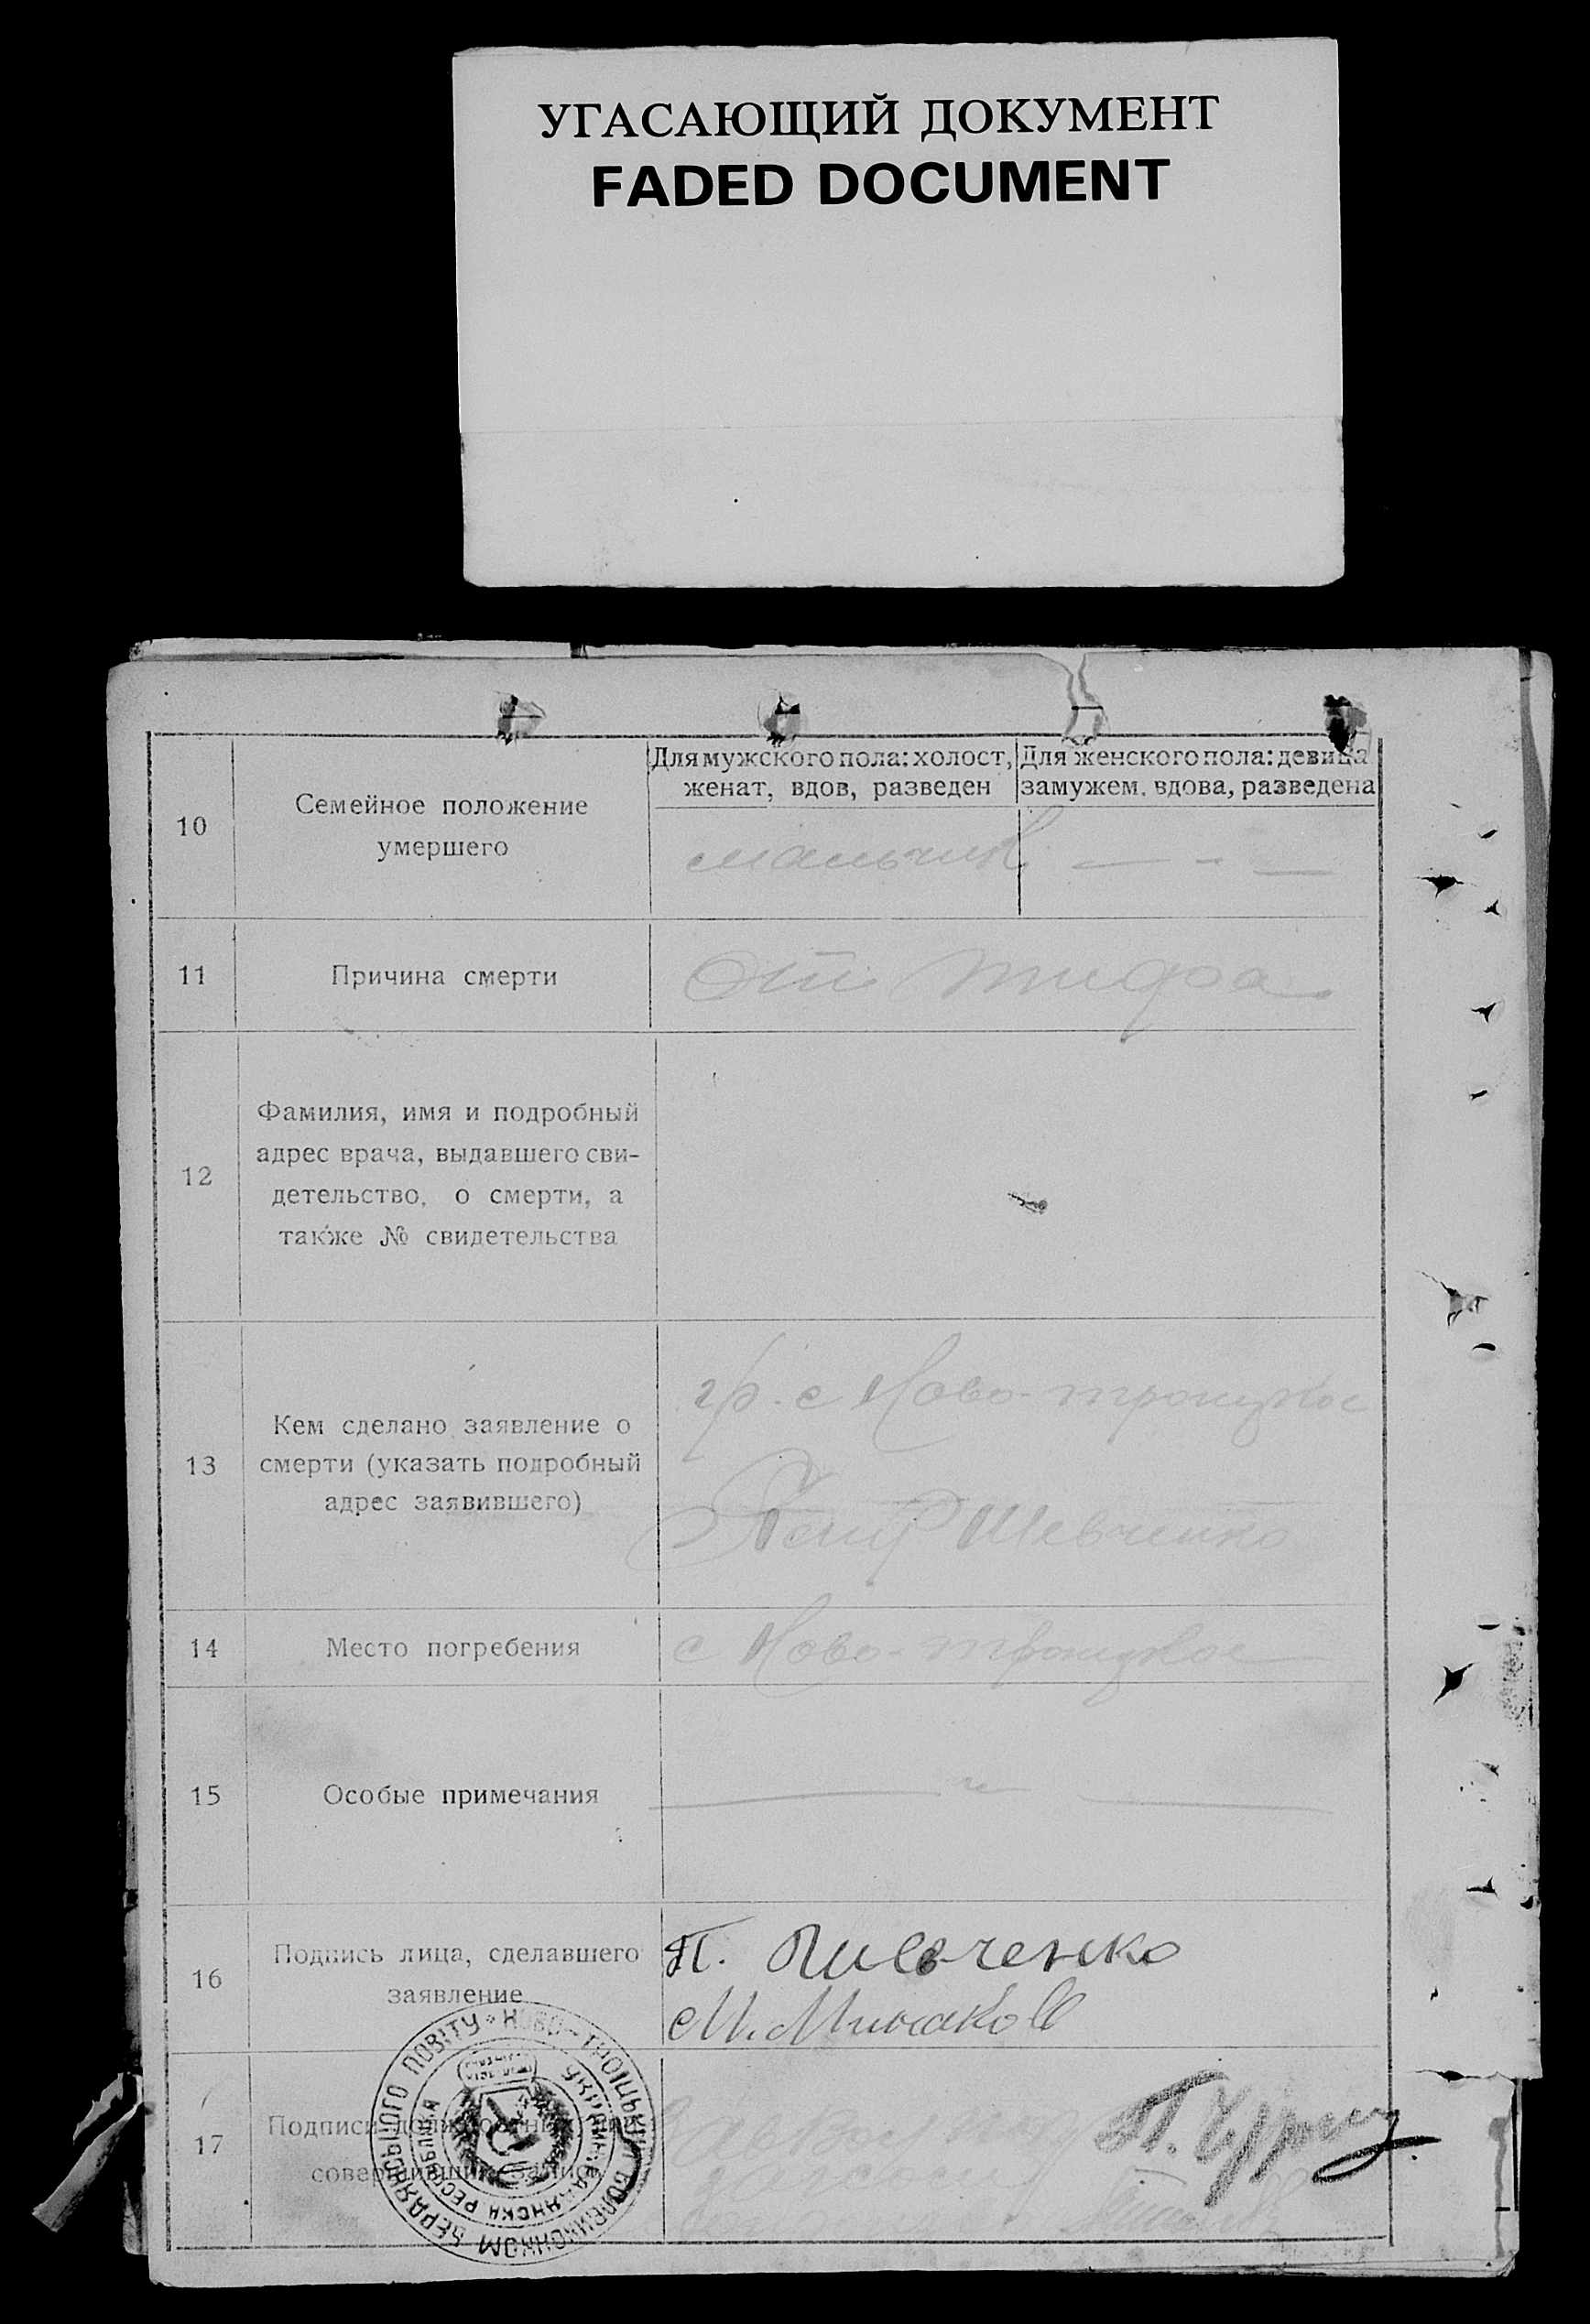 УГАСАЮЩИЙ ДОКУМЕНТ
FADED DOCUMENT
10
Семейное положение
умершего
Для мужского пола: холост,
женат, вдов, разведен
Для женского пола: девица
замужем, вдова, разведена
мальчик — - —
11
Причина смерти
От тифа
12
Фамилия, имя и подробный
адрес врача, выдавшего сви-
детельство, о смерти, а
также № свидетельства
13
Кем сделано заявление о
смерти (указать подробный
адрес заявившего)
гр. с Ново-троицкое
Петр Шевченко
14
Место погребения
с Ново-троицкое
15
Особые примечания
16
Подпись лица, сделавшего
заявление
П.
М. Минаков
17
Подписи
НОВО-ТРОІЦЬКИЙ ВОЛВИКОНКОМ БЕРДЯНСЬКОГО ПОВІТУ